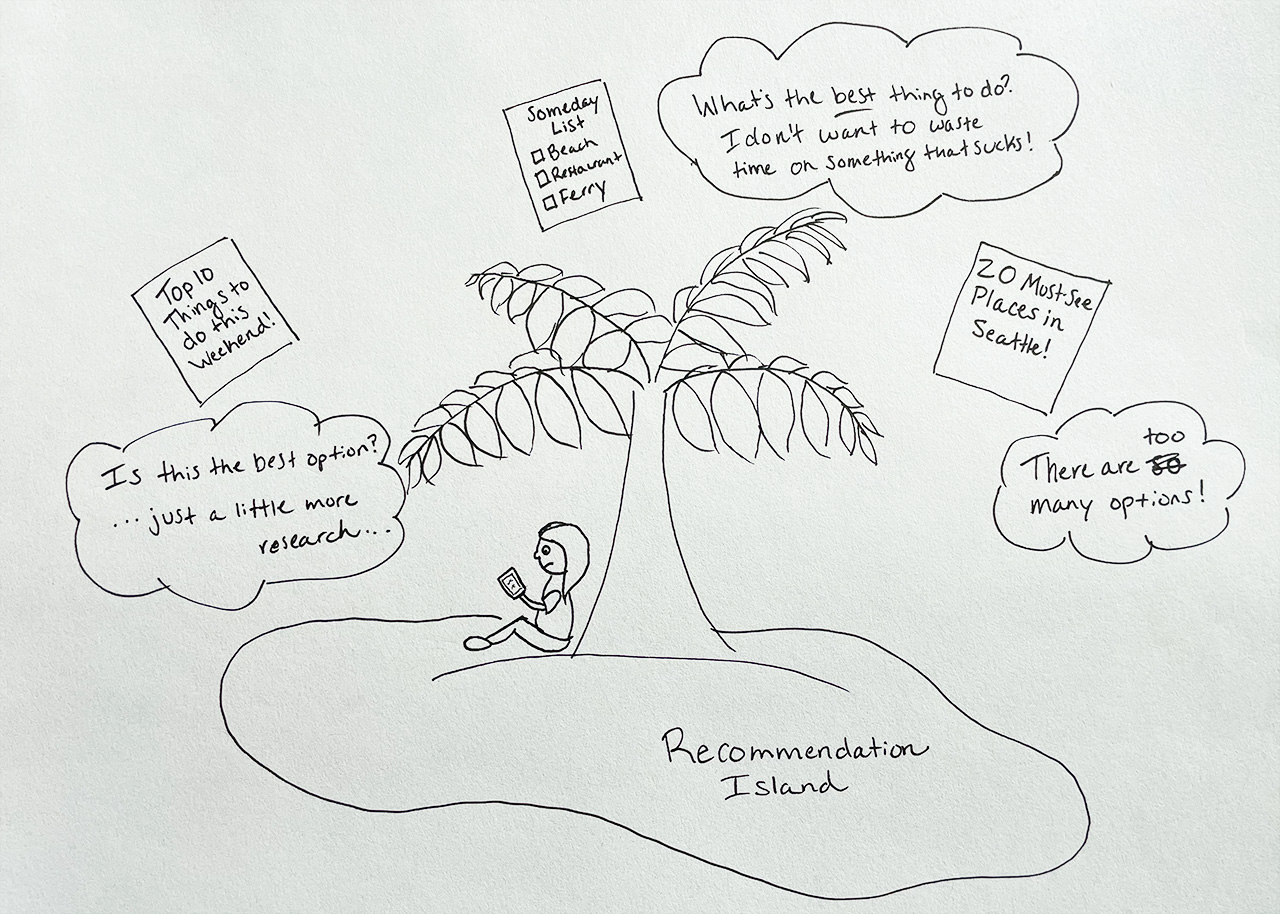 What's the best thing to do?
I don't want to waste
time on something that sucks!
Someday
List
Beach
Restaurant
Ferry
Top 10
Things to
do this
Weekend!
20 Must-See
Places in
Seattle!
Is this the best option?
...just a little more
research...
too
There are so
many options!
Recommendation
Island